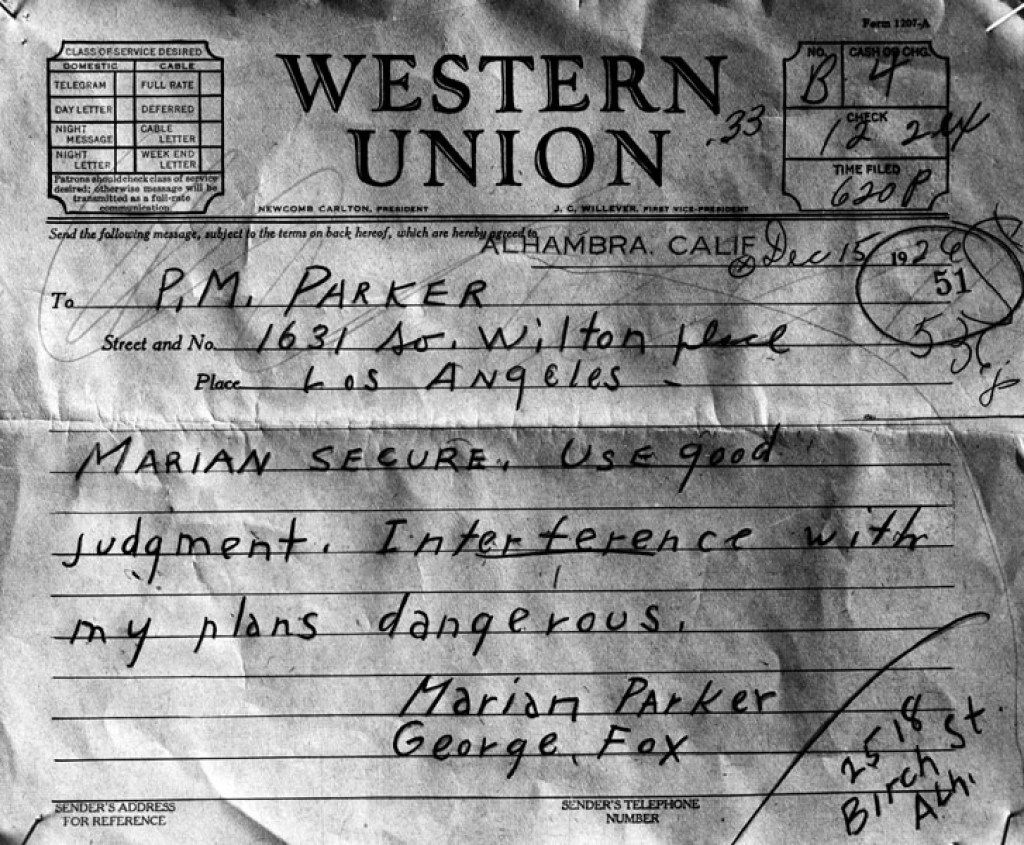 Form 1207-A
CLASS OF SERVICE DESIRED
DOMESTIC CABLE
TELEGRAM FULL RATE
DAY LETTER DEFERRED
NIGHT MESSAGE CABLE LETTER
NIGHT LETTER WEEK END LETTER
Patrons should check class of service
desired; otherwise message will be
transmitted as a full-rate
communication.
WESTERN
UNION
.33
NEWCOMB CARLTON, PRESIDENT J. C. WILLEVER, FIRST VICE-PRESIDENT
NO. CASH OR CHG.
B 4
CHECK
12
TIME FILED
620P
Send the following message, subject to the terms on back hereof, which are hereby agreed to
ALHAMBRA, CALIF Dec 15 192
51
To P.M. PARKER
Street and No. 1631 So. Wilton place
Place Los ANgeles
MARIAN SECURE. USE good
judgment. Interference with
my plans dangerous.
Marian PArker
George Fox
2518
Birch St.
Alh.
SENDER'S ADDRESS
FOR REFERENCE
SENDER'S TELEPHONE
NUMBER